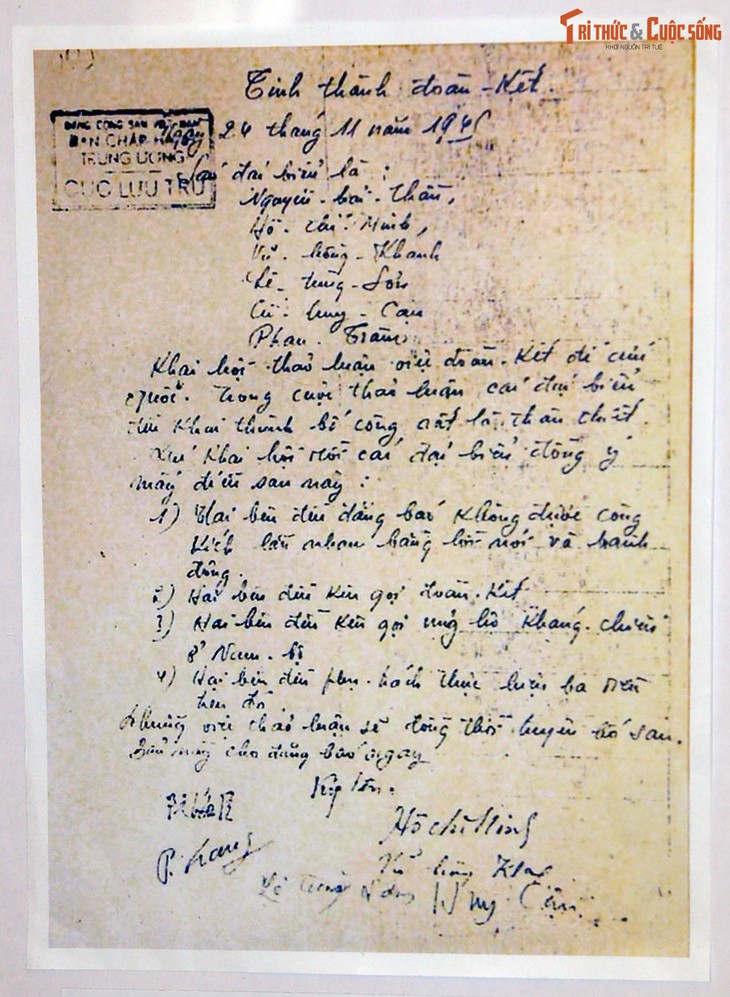 TRI THỨC & CUỘC SỐNG
KHƠI NGUỒN TRI TUỆ
Tinh thành đoàn-Kết.
ĐẢNG CỘNG SẢN VIỆT NAM
BAN CHẤP HÀNH
TRUNG ƯƠNG
CỤC LƯU TRỮ
Ngày 24 tháng 11 năm 1945
Các đại biểu là :
Nguyễn-hải-Thần,
Hồ-chí-Minh,
Vũ-hồng-Khanh
Lê-tùng-Sơn
Cù-huy-Cận
Phan-Trâm
Khai hội thảo luận việc đoàn-Kết để cứu
quốc. Trong cuộc thảo luận các đại biểu
đều Khai thành bố công rất là thân thiết.
Khai hội rồi các đại biểu đồng ý
mấy điều sau này :
1) Hai bên đều đăng báo Không được công
Kích lẫn nhau bằng lời nói và hành
động.
2) Hai bên đều Kêu gọi đoàn-Kết
3) Hai bên đều Kêu gọi ủng hộ Kháng-chiến
ở Nam-bộ
4) Hai bên đều phụ-trách thực hiện ba điều
trên đó.
Những việc thảo luận sẽ đồng thời tuyên bố sau.
Biên này cho đăng báo ngay
Ký tên.
Hồ chí Minh
Vũ hồng Khanh
Lê Tùng Sơn
Huy Cận